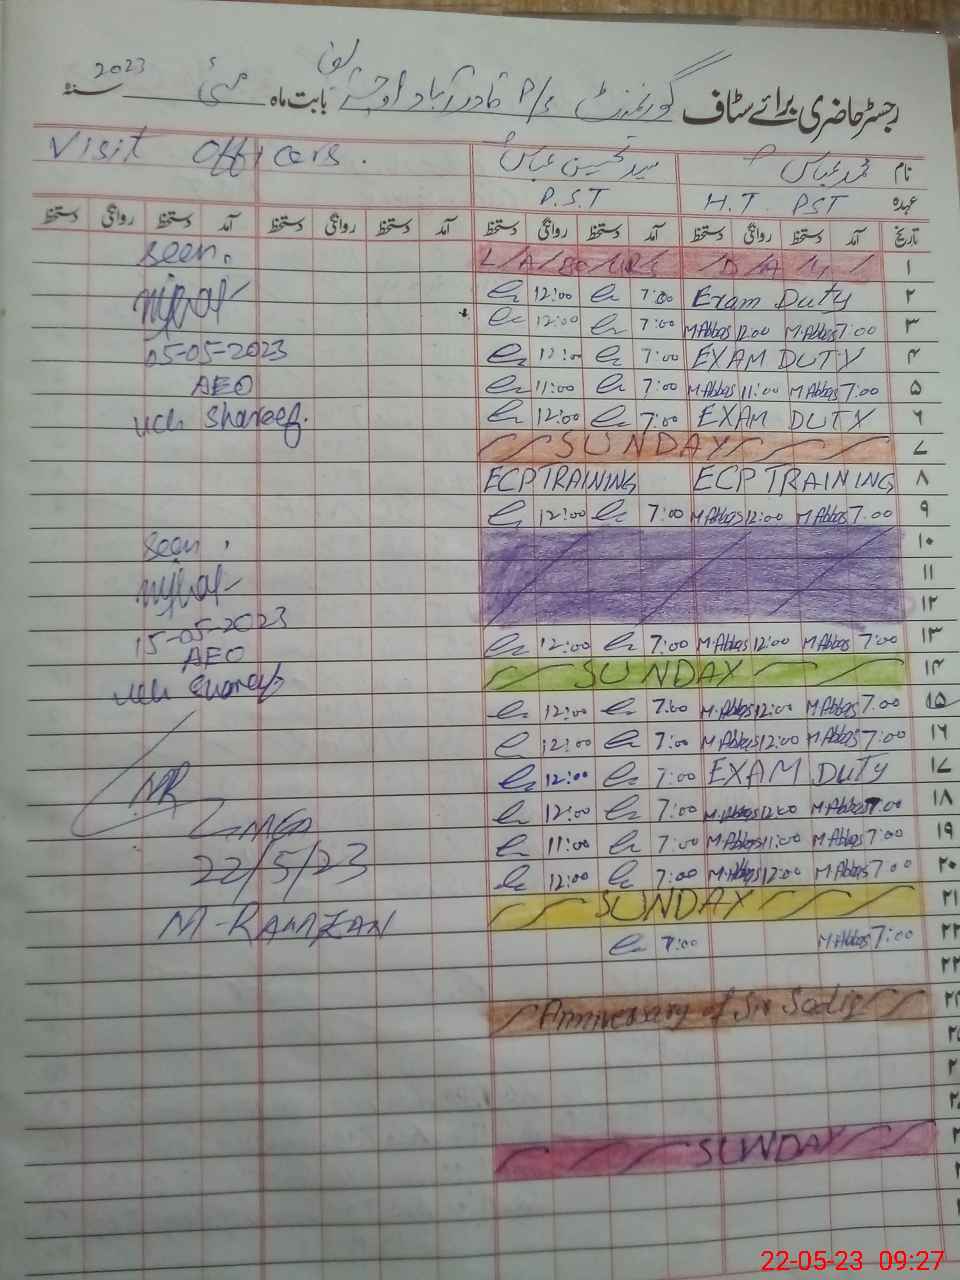 2023
رجسٹر حاضری برائے سٹاف گورنمنٹ P/S قادر آباد بابت ماہ مئی سنہ
Visit Officers.
نام محمد عباس سید تحسین عباس
عہدہ H.T. PST P.S.T
تاریخ آمد دستخط روانگی دستخط آمد دستخط روانگی دستخط آمد دستخط روانگی دستخط آمد دستخط روانگی دستخط
۱ L/A/BO/UR/S /D/A/Y/
seen.
۲ 12:00 7:00 Exam Duty
۳ 12:00 7:00 M.Abbas 12:00 M.Abbas 7:00
05-05-2023
۴ 12:00 7:00 EXAM DUTY
AEO
۵ 11:00 7:00 M.Abbas 11:00 M.Abbas 7:00
uch Shareef.
۶ 12:00 7:00 EXAM DUTY
۷ SUNDAY
۸ ECP TRAINING ECP TRAINING
۹ 12:00 7:00 M.Abbas 12:00 M.Abbas 7:00
seen.
۱۰
۱۱
۱۲
15-05-2023
AEO
۱۳ 12:00 7:00 M.Abbas 12:00 M.Abbas 7:00
uch Shareef
۱۴ SUNDAY
۱۵ 12:00 7:00 M.Abbas 12:00 M.Abbas 7:00
۱۶ 12:00 7:00 M.Abbas 12:00 M.Abbas 7:00
۱۷ 12:00 7:00 EXAM DUTY
MR
۱۸ 12:00 7:00 M.Abbas 12:00 M.Abbas 7:00
MEA
۱۹ 11:00 7:00 M.Abbas 11:00 M.Abbas 7:00
22/5/23
۲۰ 12:00 7:00 M.Abbas 12:00 M.Abbas 7:00
M-RAMZAN
۲۱ SUNDAY
۲۲ 7:00 M.Abbas 7:00
۲۳
Anniversary of Sir Sadiq
SUNDAY
22-05-23 09:27